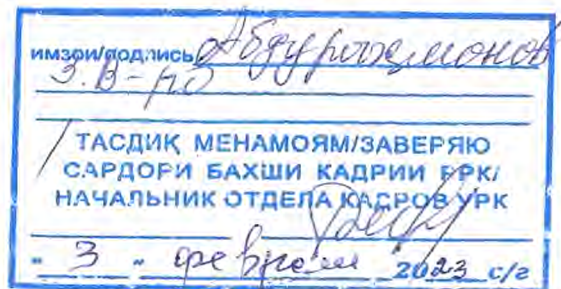 имзои/подпись Абдурахмонов
З.В-ро
ТАСДИҚ МЕНАМОЯМ/ЗАВЕРЯЮ
САРДОРИ БАХШИ КАДРИИ РРК/
НАЧАЛЬНИК ОТДЕЛА КАДРОВ УРК
" 3 " феврали 2023 с/г